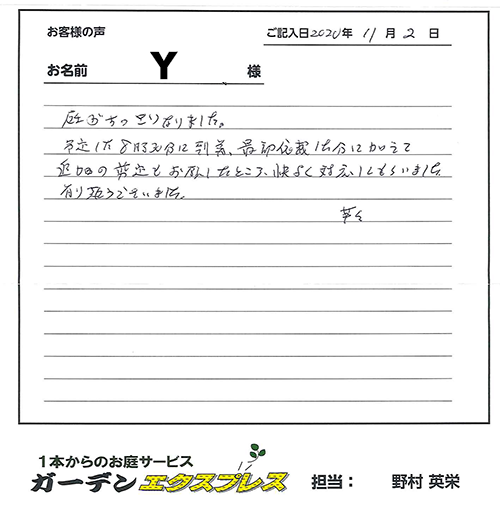 お客様の声
ご記入日2020年 11月 2日
お名前 Y 様
庭がさっぱりなりました。
予定した8時30分に到着、最初依頼した分に加えて
追加の剪定もお願いしたところ、快よく対応してもらいました
有り難うございました。
草々
1本からのお庭サービス
ガーデンエクスプレス 担当： 野村 英栄